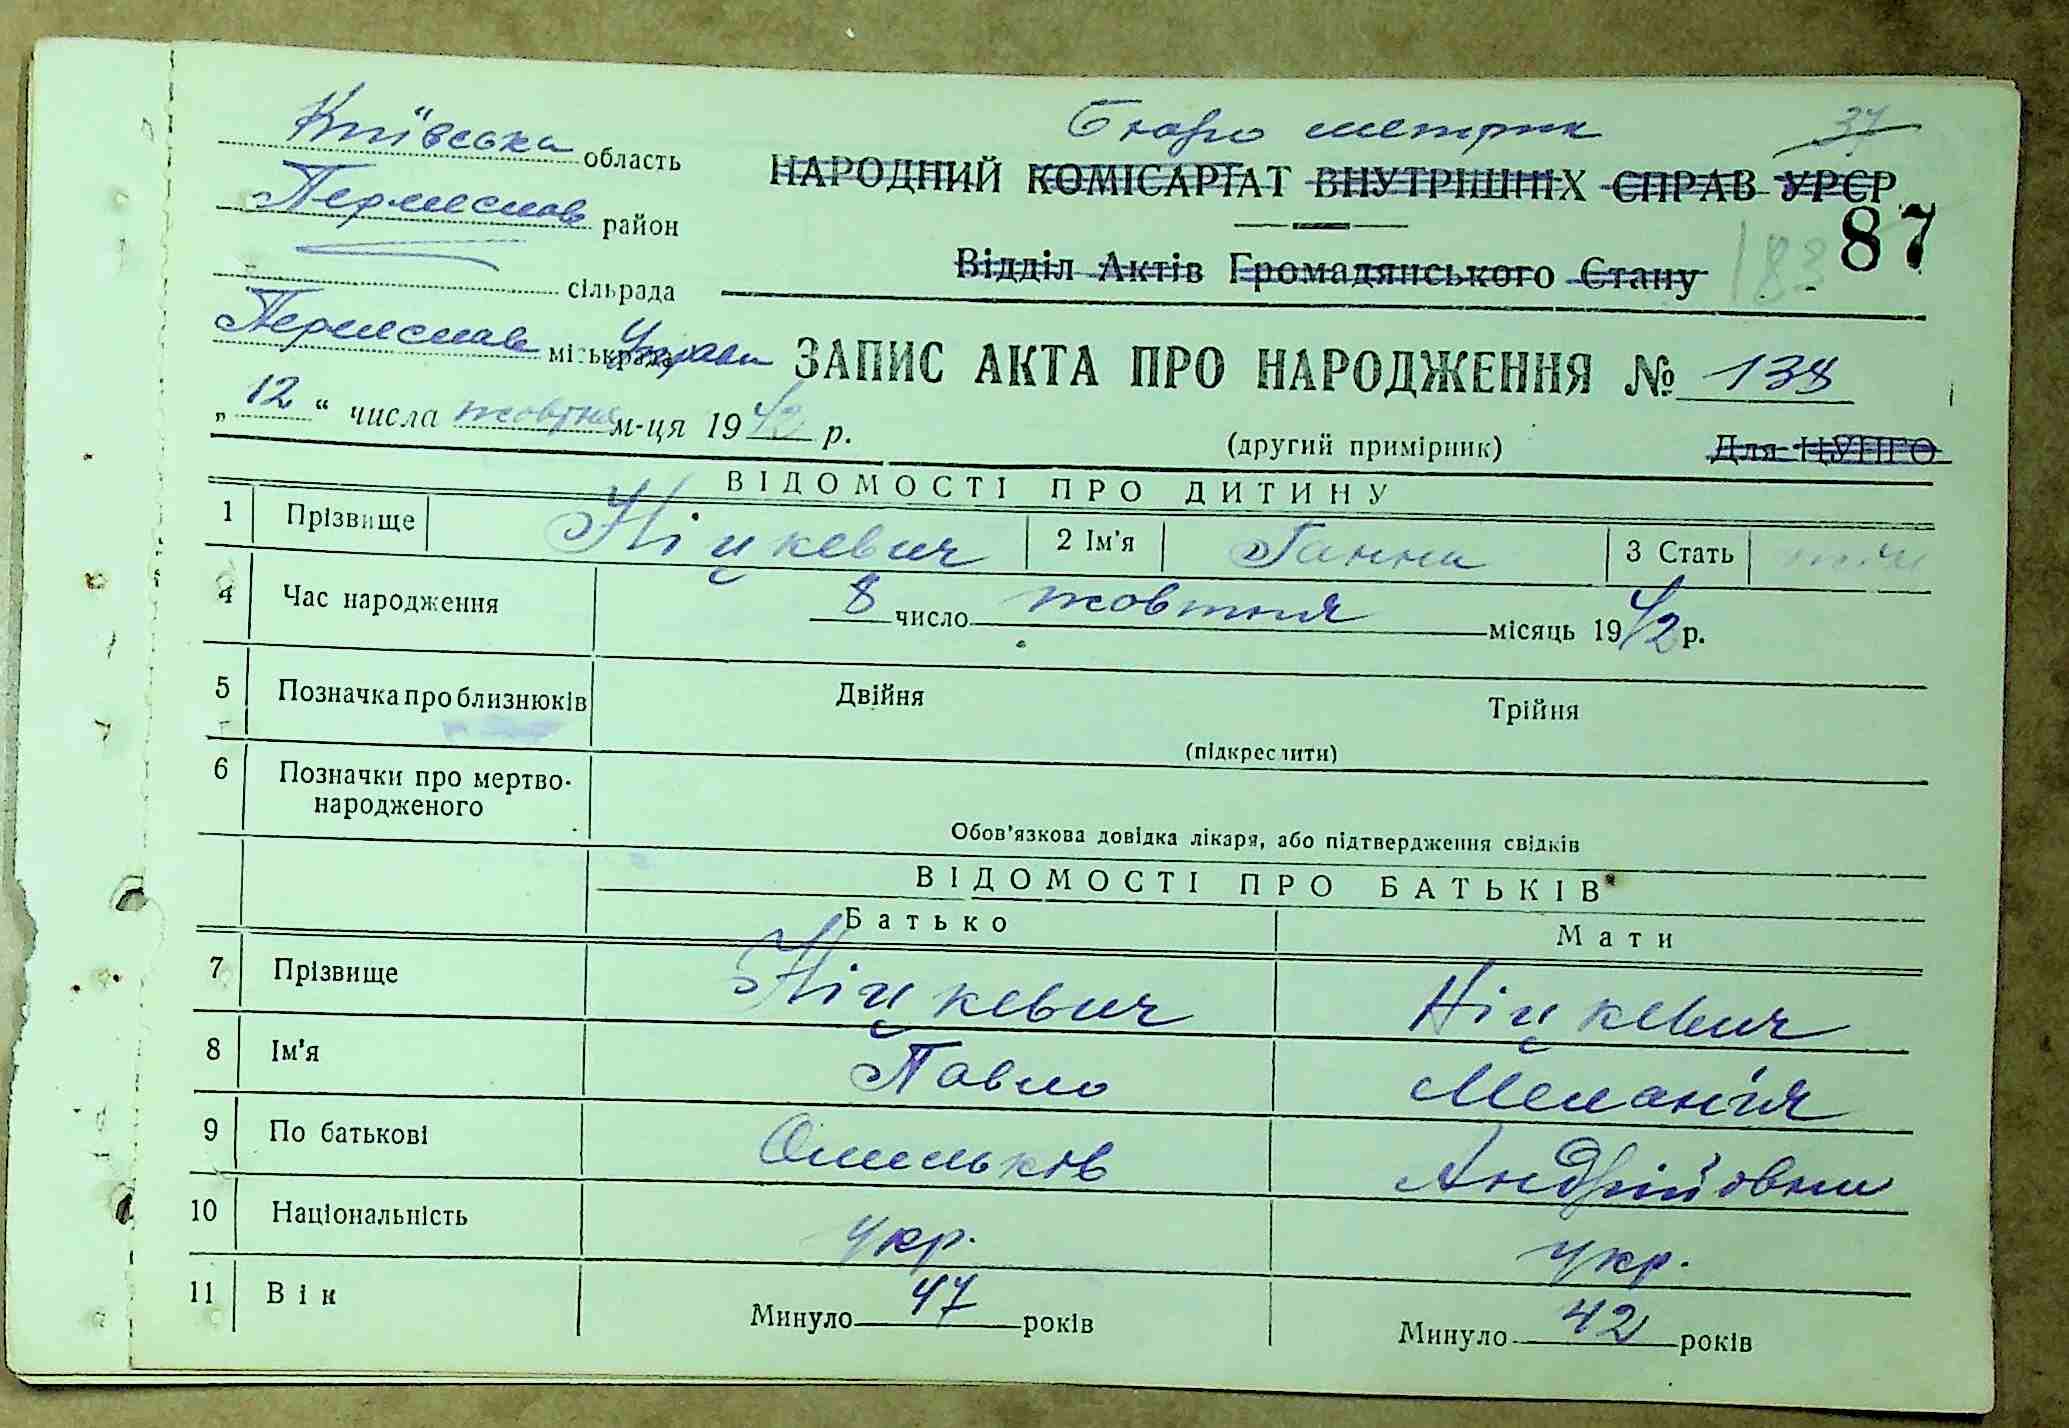 Київська область
Бюро метрик
37
НАРОДНИЙ КОМІСАРІАТ ВНУТРІШНІХ СПРАВ УРСР
Переяслав район
87
183
Відділ Актів Громадянського Стану
сільрада
Переяслав міськрада Управа
ЗАПИС АКТА ПРО НАРОДЖЕННЯ № 138
„12“ числа жовтня м-ця 1942 р.
(другий примірник)
Для ЦУНГО
ВІДОМОСТІ ПРО ДИТИНУ
1 Прізвище Ніцкевич 2 Ім'я Ганна 3 Стать жін
4 Час народження 8 число жовтня місяць 1942 р.
5 Позначка про близнюків Двійня Трійня
(підкреслити)
6 Позначки про мертво-
народженого
Обов'язкова довідка лікаря, або підтвердження свідків
ВІДОМОСТІ ПРО БАТЬКІВ
Батько Мати
7 Прізвище Ніцкевич Ніцкевич
8 Ім'я Павло Меланія
9 По батькові Омельків Андрійовна
10 Національність укр. укр.
11 Вік Минуло 47 років Минуло 42 років